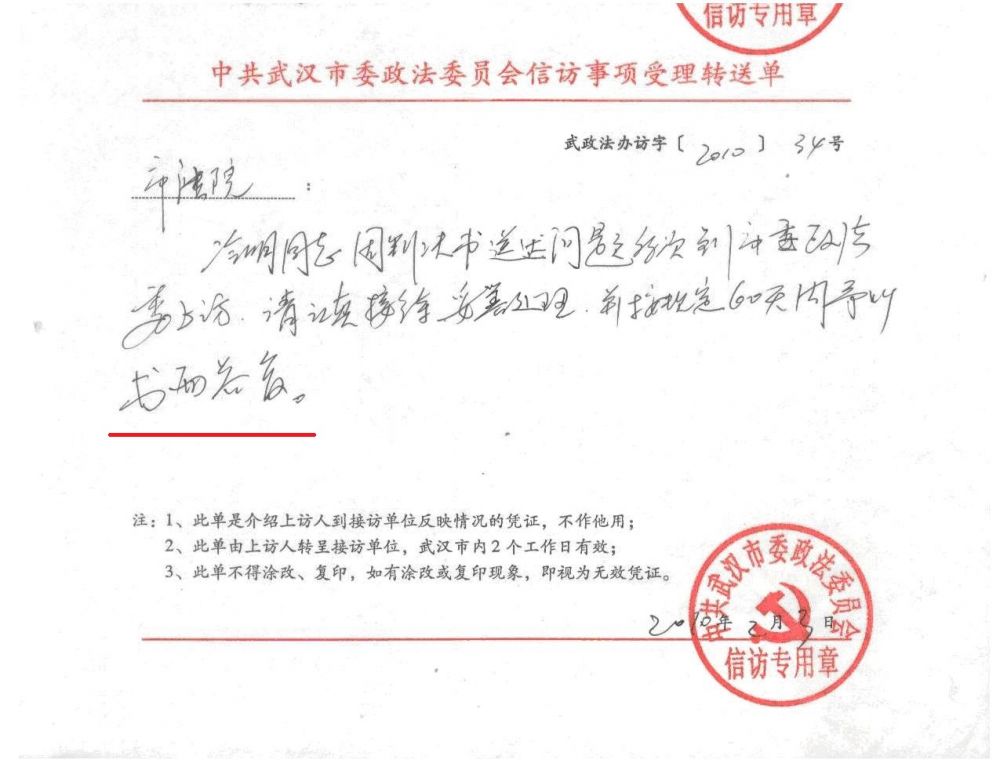 信访专用章
中共武汉市委政法委员会信访事项受理转送单
武政法办访字〔2010〕34号
市法院：
冷明同志因判决书送达问题多次到市委政法
委上访．请认真接待妥善处理．并按规定60天内予以
书面答复。
注：1、此单是介绍上访人到接访单位反映情况的凭证，不作他用；
2、此单由上访人转呈接访单位，武汉市内2个工作日有效；
3、此单不得涂改、复印，如有涂改或复印现象，即视为无效凭证。
2010年2月3日
中共武汉市委政法委员会
信访专用章